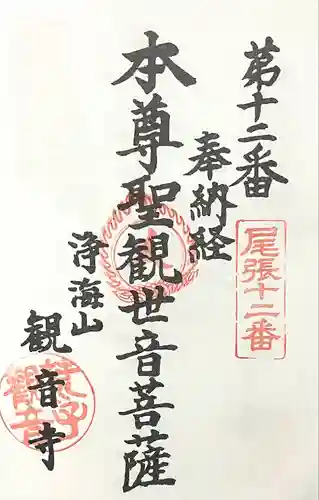 第十二番
尾張十二番
奉納経
本尊聖観世音菩薩
浄海山
観音寺